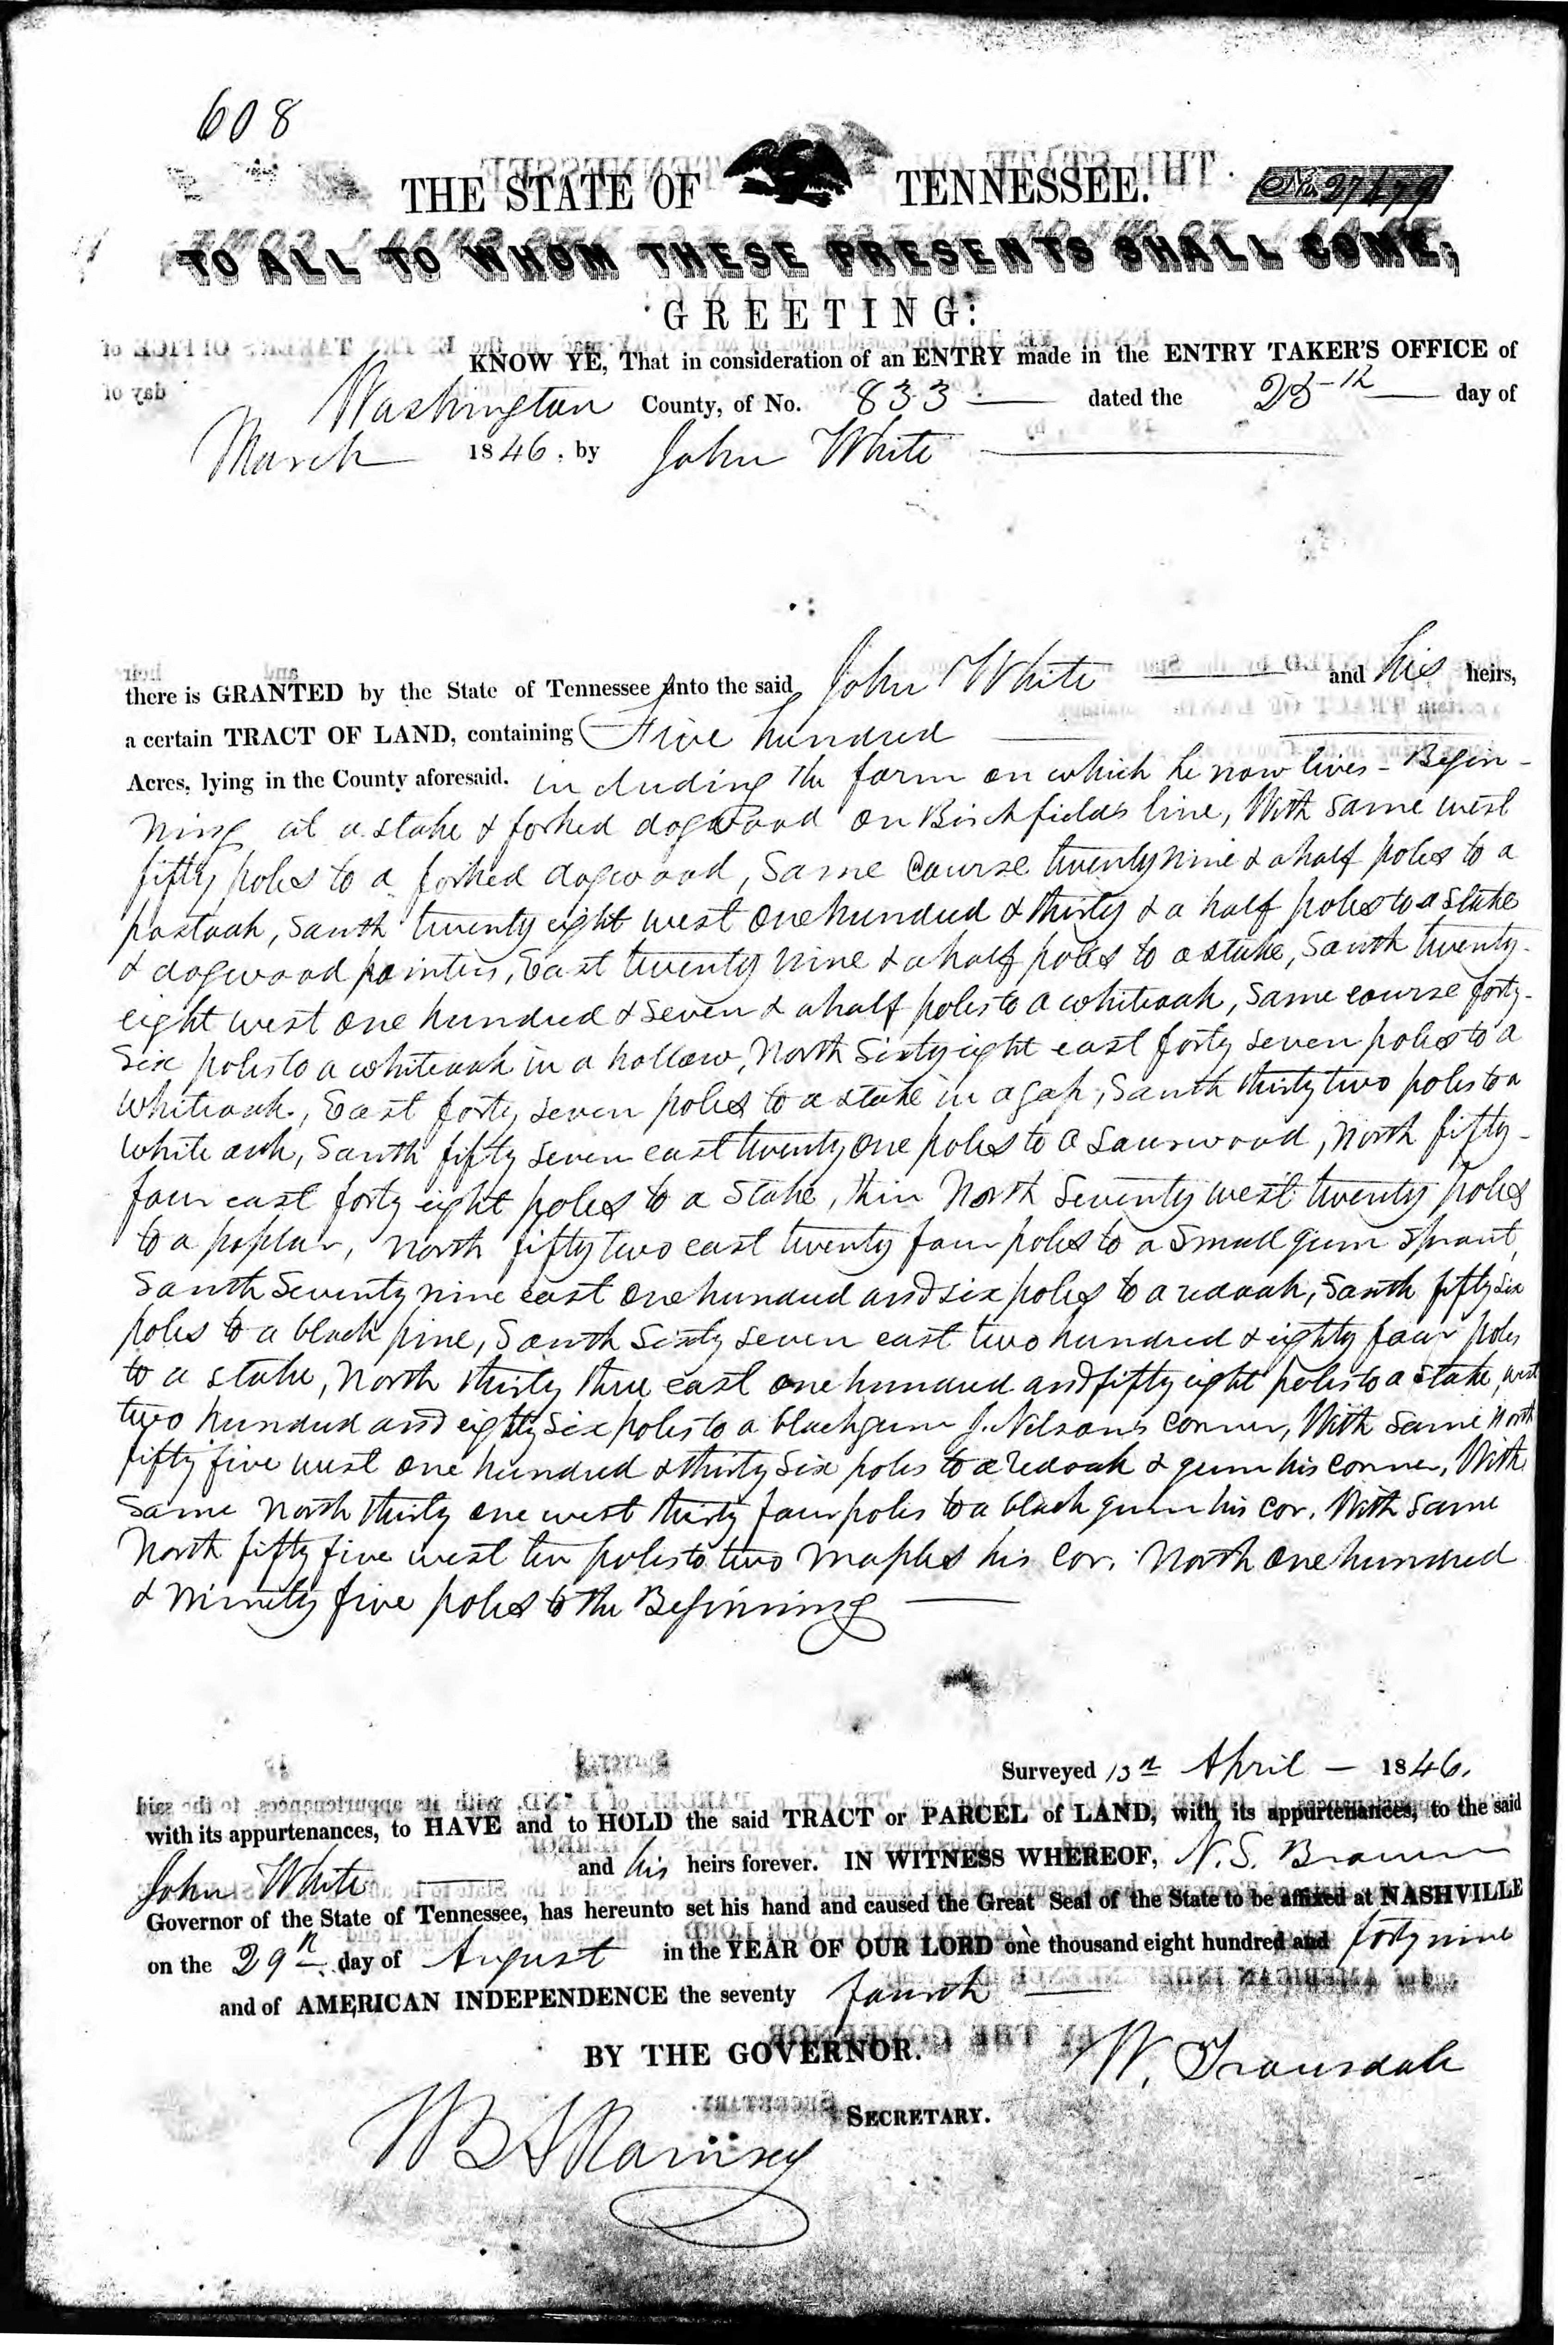 608
THE STATE OF TENNESSEE. No. 27179
TO ALL TO WHOM THESE PRESENTS SHALL COME;
GREETING:
KNOW YE, That in consideration of an ENTRY made in the ENTRY TAKER'S OFFICE of
Washington County, of No. 833 dated the day of
March 1846, by John White
there is GRANTED by the State of Tennessee unto the said John White and his heirs,
a certain TRACT OF LAND, containing Five hundred
Acres, lying in the County aforesaid. including the farm on which he now lives - Begin-
ning at a stake & forked dogwood on Birchfields line, With same west
fifty poles to a forked dogwood, Same Course twenty nine & a half poles to a
postoak, South twenty eight west One hundred & thirty & a half poles to a stake
& dogwood pointers, East twenty nine & a half poles to a stake, South twenty-
eight west one hundred & seven & a half poles to a whiteoak, same course forty-
six poles to a whiteoak in a hollow, North Sixty eight east forty seven poles to a
whiteoak, East forty seven poles to a stake in a gap, South thirty two poles to a
white oak, South fifty seven east twenty one poles to a Sourwood, North fifty-
four east forty eight poles to a Stake, then North Seventy west twenty poles
to a poplar, North fifty two east twenty four poles to a Small gum Sprout,
South Seventy nine east One hundred and six poles to a redoak, South fifty six
poles to a black pine, South Sixty seven east two hundred & eighty four poles
to a stake, North thirty three east one hundred and fifty eight poles to a stake, west
two hundred and eighty six poles to a blackgum J. Nelsons corner, With same North
fifty five west one hundred & thirty six poles to a redoak & gum his corner, With
same North thirty one west thirty four poles to a black gum his cor. With same
North fifty five west ten poles to two maples his cor. North One hundred
& Ninety five poles to the Beginning
Surveyed 13th April - 1846.
with its appurtenances, to HAVE and to HOLD the said TRACT or PARCEL of LAND, with its appurtenances, to the said
John White and his heirs forever. IN WITNESS WHEREOF, N. S. Brown
Governor of the State of Tennessee, has hereunto set his hand and caused the Great Seal of the State to be affixed at NASHVILLE
on the 29th day of August in the YEAR OF OUR LORD one thousand eight hundred and forty nine
and of AMERICAN INDEPENDENCE the seventy fourth
BY THE GOVERNOR. W. Trousdale
SECRETARY.
W B A Ramsey